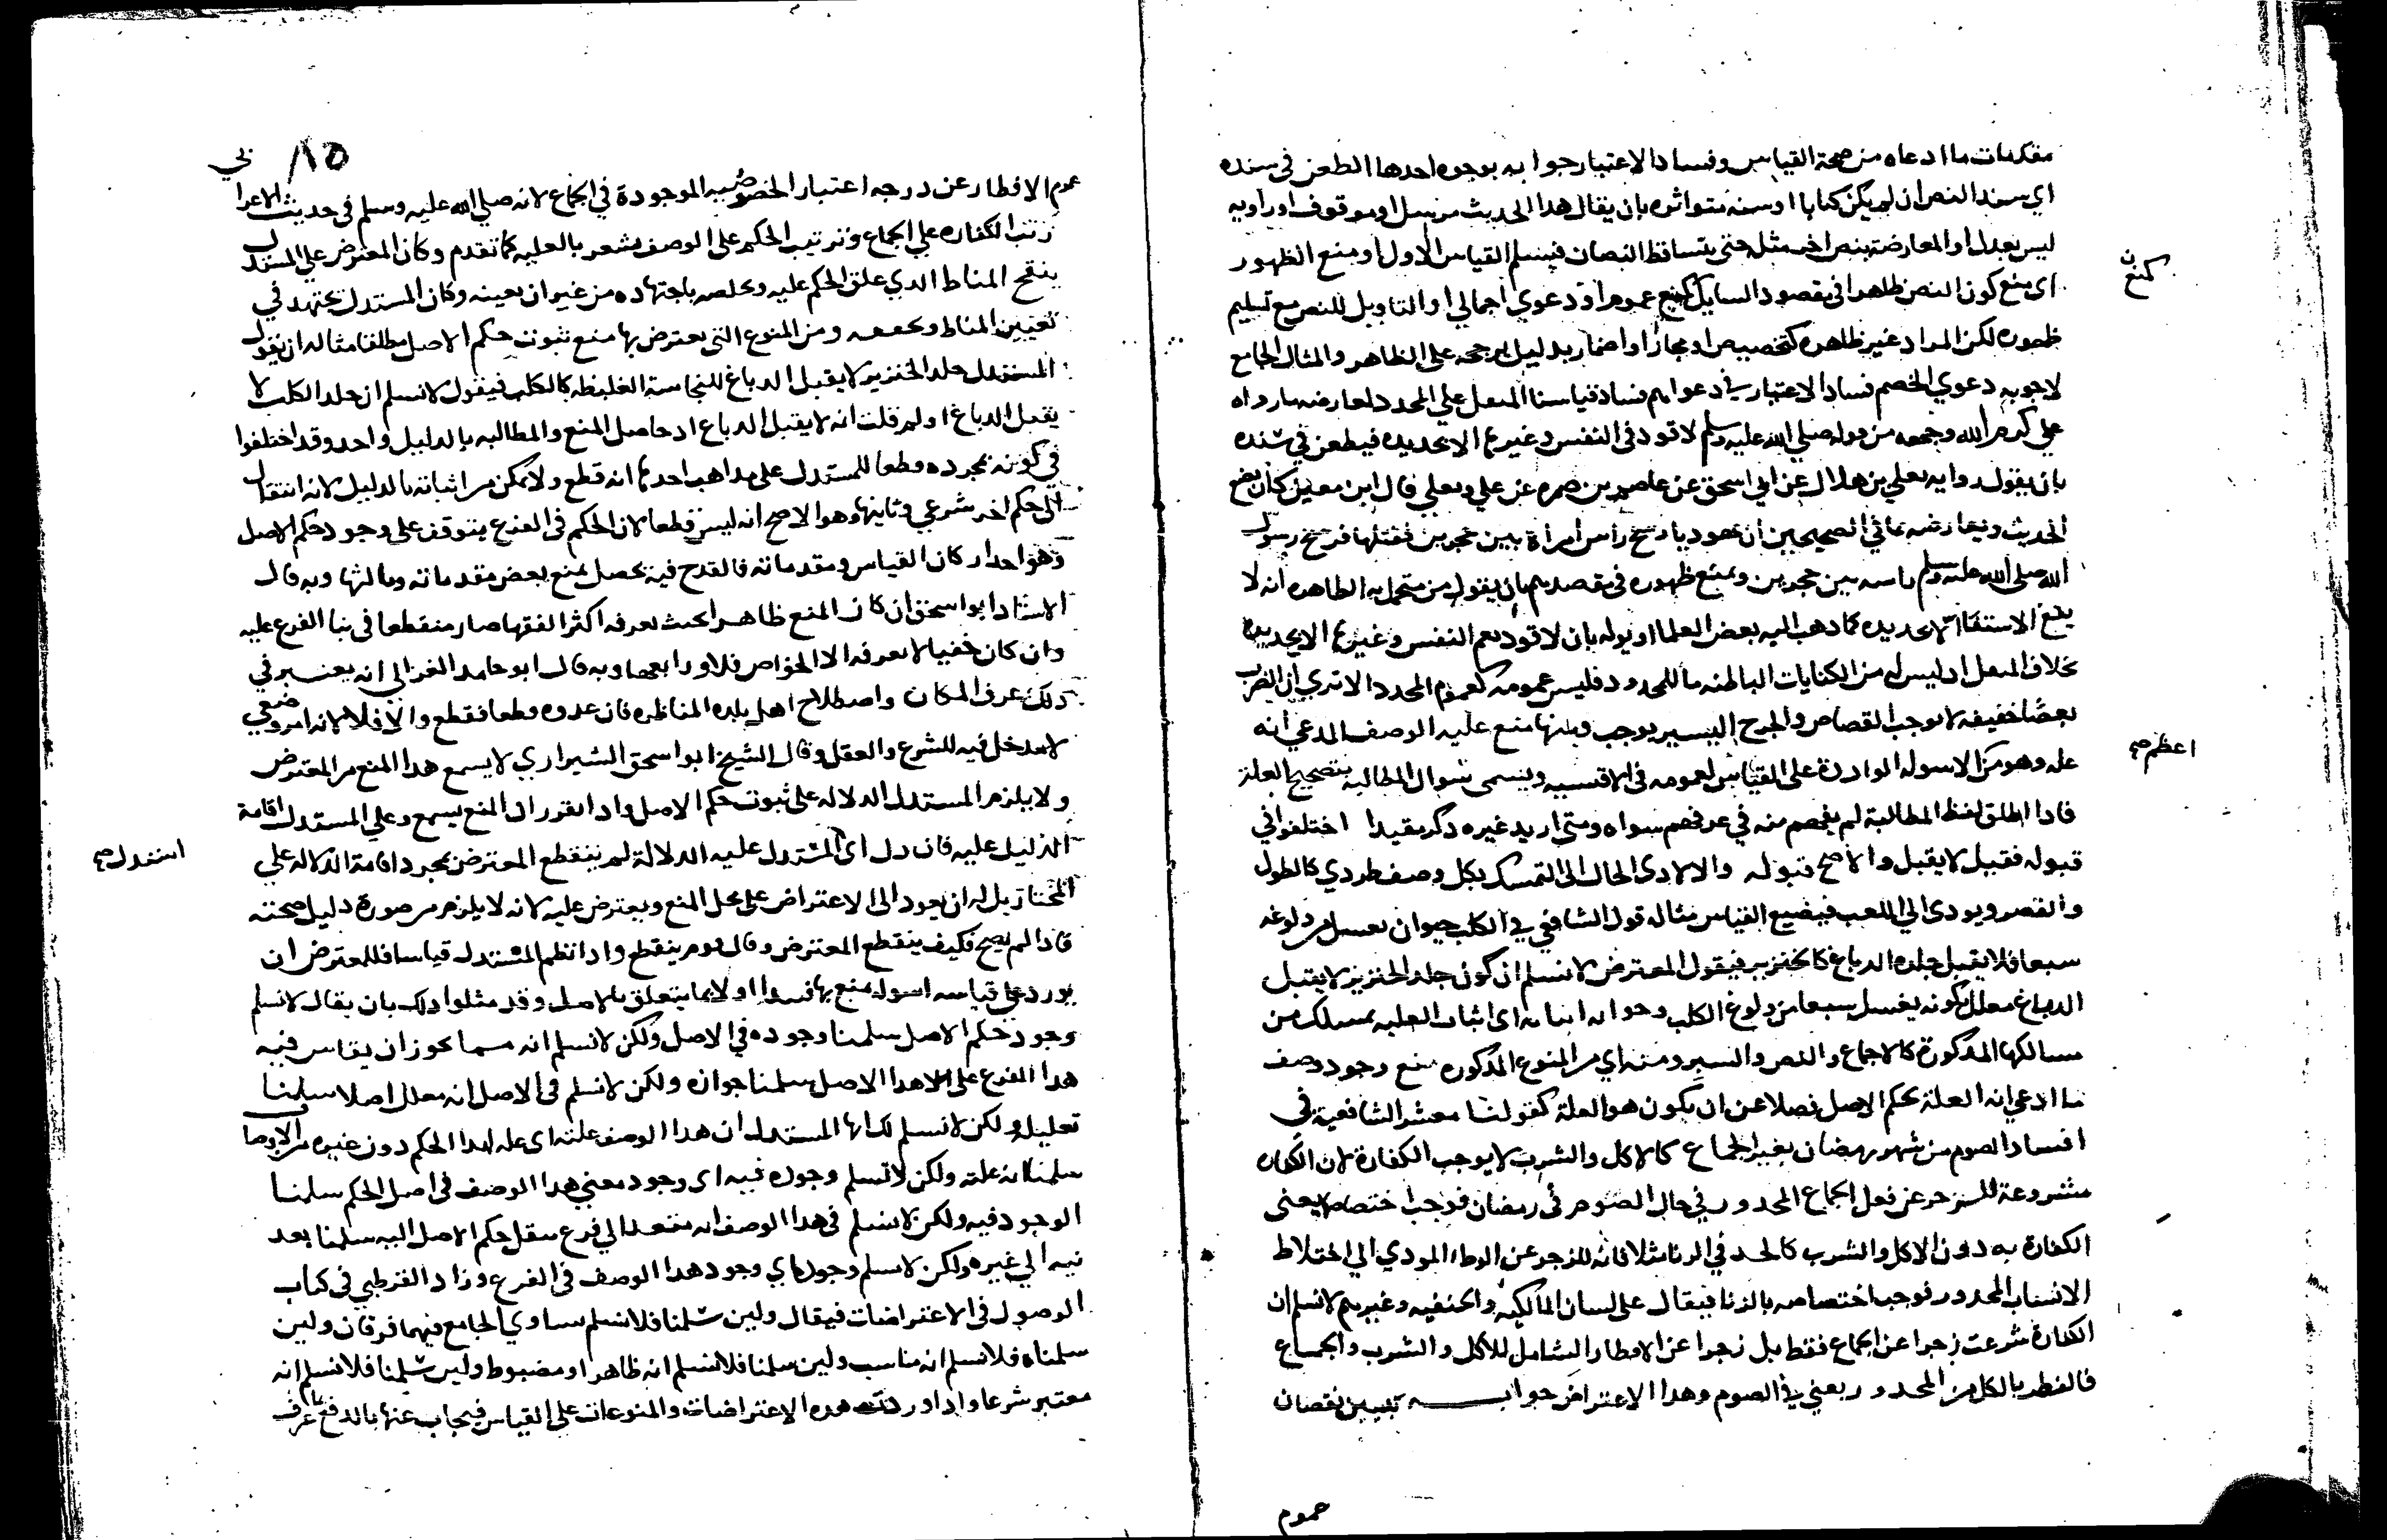 مقدمات ما ادعاه من صحة القياس وفساد الاعتبار جوابه بوجوه احدها الطعن في سنده
اي سند النص ان لم يكن كتابا او سنه متواتره بان يقال هدا الحديث مرسل او موقوف او راويه
ليس بعدل او المعارضة بنص اخر مثله حتى يتساقط النصان فيسلم القياس الاول او منع الظهور
اى منع كون النص ظاهرا في مقصود السايل كمنع عموم او دعوي اجمالي او التاويل للنص مع تسليم
كمنع ن
ظهوره لكن المراد غير ظاهره كتخصيص او مجاز او اضمار بدليل يرجحه على الظاهر والمثال الجامع
لاجوبه دعوي الخصم فساد الاعتبار في دعواهم فساد قياسنا المثقل علي المحدد لمعارضه ما رواه
علي كرم الله وجهه من قوله صلي الله عليه وسلم لا قود في النفس وغيرها الا بحديده فيطعن في سنده
بان يقول رواية يعلي بن هلال عن ابي اسحق عن عاصم بن ضمره عن علي ويعلي قال ابن معين كان يضع
الحديث وبمعارضه بما في الصحيحين ان يهوديا رضخ راس امراة بين حجرين فقتلها فرضخ رسول
الله صلى الله عليه وسلم راسه بين حجرين ويمنع ظهوره في مقصدهم بان يقول من متحمل به الظاهره انه لا
يقع الاستيفاء الا بحديده كما دهب اليه بعض العلما او يوله بان لا قود يعم النفس وغيرها الا بحديده
بخلاف المثقل اد ليس له من النكايات الباطنه ما للمحدود فليس عمومه كعموم المحدد الا ترى ان الضرب
بعصًا خفيفه لا يوجب القصاص والجرح اليسير يوجب وبلنها منع علية الوصف المدعي انه
عله وهو من الاسوله الواردة على القياس لعمومه في الاقيسه ويسمى سوال المطالبه بتصحيح العلة
اعظم صح
فادا اطلق لفظ المطالبة لم يفهم منه في عرفهم سواه ومتى اريد غيره دكر مقيدا اختلفوا في
قبوله فقيل لا يقبل والاصح قبوله والا لادى الحال الى التمسك بكل وصف طردي كالطول
والقصر ويودى الي اللعب فيضيع القياس مثاله قول الشافعي في الكلب حيوان يغسل من ولوغه
سبعا فلا يقبل جلده الدباغ كالخنزير فيقول المعترض لا نسلم ان كون جلد الخنزير لا يقبل
الدباغ معلل بكونه يغسل سبعا من ولوغ الكلب وجوابه اثباته اى اثبات العليه بمسلك من
مسالكها المدكورة كالاجماع والنص والسبر ومنه اي من المنوع المدكوره منع وجود وصف
ما ادعي انه العلة بحكم الاصل فضلا عن ان يكون هو العلة كقولنا معشر الشافعية في
افساد الصوم من شهر رمضان بغير الجماع كالاكل والشرب لا يوجب الكفارة لان الكفاره
مشروعة للزجر عن فعل الجماع المحدور في حال الصوم في رمضان فوجب اختصاصها يعنى
الكفارة به دون الاكل والشرب كالحد في الزنا مثلا فانه للزجر عن الوطء المودي الي اختلاط
الانساب المحدور فوجب اختصاصه بالزنا فيقال على لسان المالكيه والحنفيه وغيرهم لا نسلم ان
الكفارة شرعت زجرا عن الجماع فقط بل زجرا عن الافطار الشامل للاكل والشرب والجماع
فالفطر بالكل من المحدور يعني في الصوم وهدا الاعتراض جوابه تبيين نقصان
عموم
١١٥
عموم الافطار عن درجه اعتبار الخصوصيه الموجودة في الجماع لانه صلي الله عليه وسلم في حديث الاعرا بي
رتب الكفاره علي الجماع وترتيب الحكم على الوصف مشعر بالعليه كما تقدم وكان المعترض علي المستدل
ينقح المناط الدي علق الحكم عليه ويخلصه باجتهاده من غير ان يعينه وكان المستدل يجتهد في
تعيين المناط وتحققه ومن المنوع التي يعترض بها منع ثبوت حكم الاصل مطلقا مثاله ان يقول
المستدل جلد الخنزير لا يقبل الدباغ للنجاسة الغليظه كالكلب فيقول لا نسلم ان جلد الكلب لا
يقبل الدباغ او لم قلت انه لا يقبل الدباغ اد حاصل المنع والمطالبه بالدليل واحد وقد اختلفوا
في كونه بمجرده قطعا للمستدل على مداهب احدها انه قطع ولا يمكن من اثباته بالدليل لانه انتقال
الى حكم اخر شرعي وثانيها وهو الاصح انه ليس قطعا لان الحكم في الفرع يتوقف على وجود حكم الاصل
وهو احد اركان القياس ومقدماته فالقدح فيه يحصل بمنع بعض مقدماته وثالثها وبه قال
الاستاد ابو اسحق ان كان المنع ظاهرا بحيث يعرفه اكثر الفقها صار منقطعا في بنا الفرع عليه
وان كان خفيا لا يعرفه الا الخواص فلا ورابعها وبه قال ابو حامد الغزالي انه يعتبر في
دلك عرف المكان واصطلاح اهل بلده المناظره فان عدوه قطعا فقطع والا فلا لانه امر وضعي
لا مدخل فيه للشرع والعقل وقال الشيخ ابو اسحق الشيرازي لا يسمع هدا المنع من المعترض
ولا يلزم المستدل الدلاله على ثبوت حكم الاصل وادا تقرر ان المنع يسمع وعلي المستدل اقامة
الدليل عليه فان دل اى المستدل عليه الدلالة لم ينقطع المعترض بمجرد اقامة الدلاله علي
استدل صح
المختار بل له ان يعود الى الاعتراض على محل المنع ويعترض عليه لانه لا يلزم من صورة دليل صحته
فادا لم يصح فكيف ينقطع المعترض وقال قوم ينقطع وادا نظم المستدل قياسا فللمعترض ان
يورد على قياسه اسوله يمنع بها فيبدا اولا بما يتعلق بالاصل وقد مثلوا دلك بان يقال لا نسلم
وجود حكم الاصل سلمنا وجوده في الاصل ولكن لا نسلم انه مما يجوز ان يقاس فيه
هدا الفرع على هدا الاصل سلمنا جوازه ولكن لا نسلم في الاصل انه معلل اصلا سلمنا
تعليله ولكن لا نسلم لك ايها المستدل ان هدا الوصف علته اى عله لهدا الحكم دون غيره من الاوصاف
سلمنا انه علته ولكن لا نسلم وجوده فيه اى وجود معني هدا الوصف في اصل الحكم سلمنا
الوجود فيه ولكن لا نسلم في هدا الوصف انه متعد الي فرع ينقل حكم الاصل اليه سلمنا تعد
ثيه الي غيره ولكن لا نسلم وجوده اي وجود هدا الوصف في الفرع وزاد القرطبي في كتاب
الوصول في الاعتراضات فيقال ولين سلمنا فلا نسلم تساوي الجامع فيهما فرقان ولين
سلمناه فلا نسلم انه مناسب ولين سلمنا فلا نسلم انه ظاهر او مضبوط ولين سلمنا فلا نسلم انه
معتبر شرعا وادا وردت هده الاعتراضات والمنوعات على القياس فيجاب عنها بالدفع بما عرف